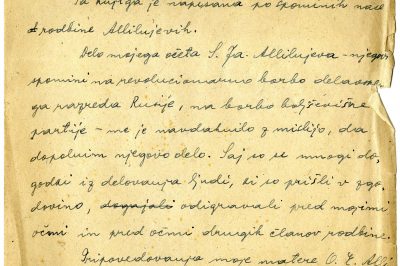 Ta knjiga je napisana po spominih naše
rodbine Allilujevih.
Delo mojega očeta S. Ja. Allilujeva - njegovi
spomini na revolucionarno borbo delavske-
ga razreda Rusije, na borbo boljševiške
partije - me je navdahnilo z mislijo, da
dopolnim njegovo delo. Saj so se mnogi do-
godki iz delovanja ljudi, ki so prišli v zgo-
dovino, dogajali odigravali pred mojimi
očmi in pred očmi drugih članov rodbine.
Pripovedovanja moje matere O. E. Alli